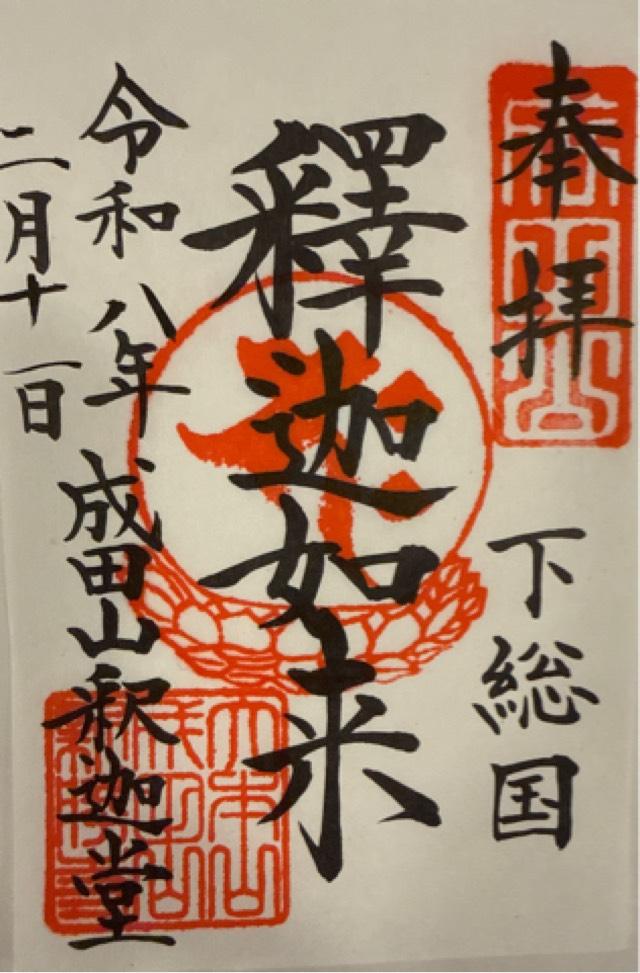 奉拝
下総国
釋迦如来
令和八年 成田山釈迦堂
二月十一日